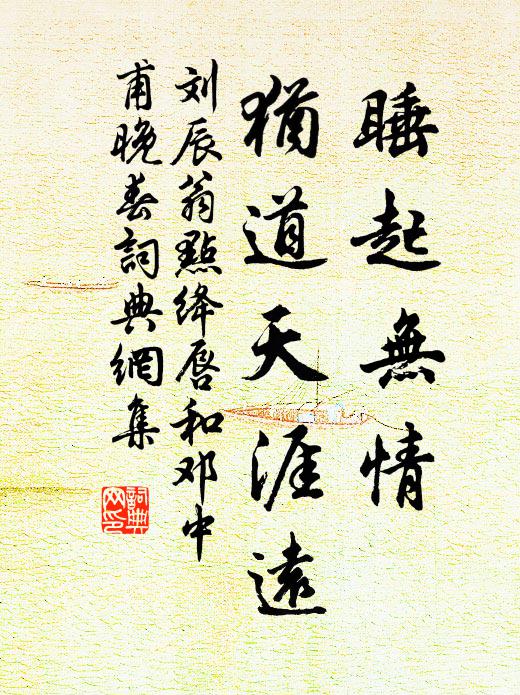 睡起無情
猶道天涯遠
刘辰翁點绛唇和邓中
甫晚春詞典網集
詞典网印